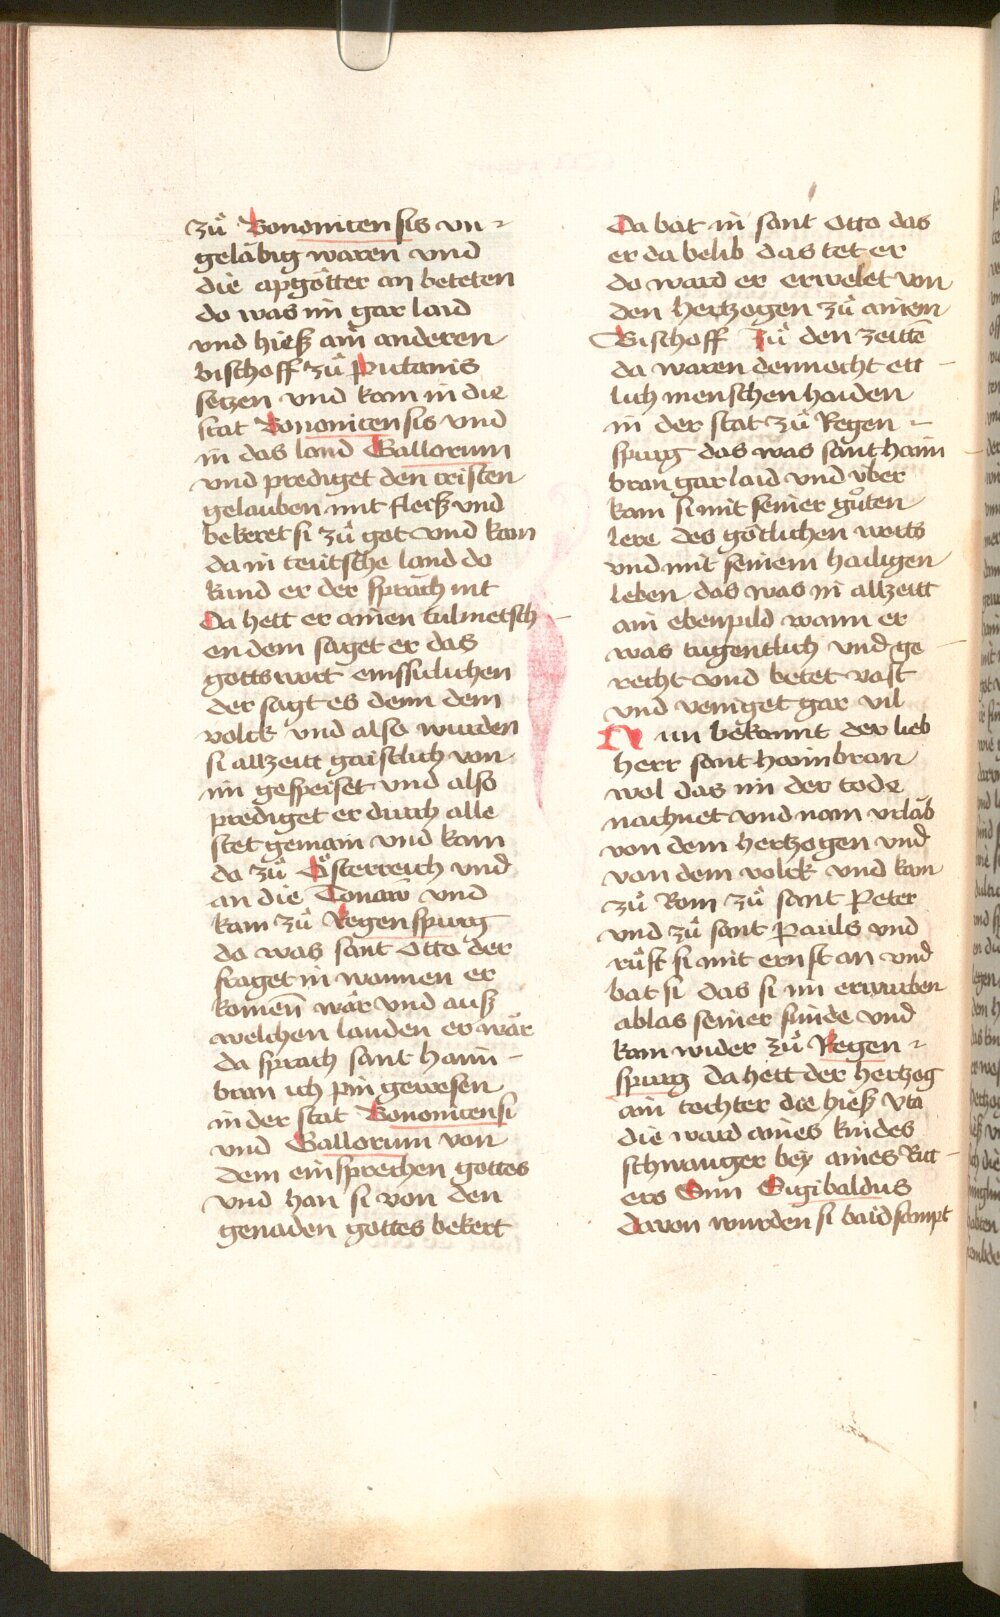 zů Bononicensis vn-
geläbig waren vnd
die apgötter an beteten
do was im gar laid
vnd hiesz ain anderen
bischoff zů Pictanis
setzen vnd kam in die
stat Bononicensis vnd
in das land Gallorum
vnd prediget den cristen
gelauben mit fleisz vnd
bekeret si zů got vnd kam
da in teutsche land do
kund er der sprach nit
Da hett er ainen tulmetsch
en dem saget er das
gottswort einssiclichen
der sagt es denn dem
volck vnd also wurden
si allzeitt gaistlich von
im gespeiset vnd also
prediget er durch alle
stet gemain vnd kam
da zů Österreich vnd
an die Tonaw vnd
kam zů Regenspurg
do was sant Otto der
fraget in wannen er
komen wär vnd ausz
welchen landen er wär
da sprach sant Haim-
bran ich pin gewesen
in der stat Bononicensi
vnd Gallorum von
dem einsprechen gottes
vnd han si von den
genaden gottes bekert
Da bat in sant Otto das
er da belib das tet er
do ward er erwelet von
den hertzogen zů ainem
Bischoff Zů den zeittē
da waren dennocht ett-
lich menschen haiden
in der stat zů Regen-
spurg das was sant haim
bran gar laid vnd vber
kam si mit seiner gůten
lere des götlichen worts
vnd mit seinem hailigen
leben das was in allzeitt
ain ebenpild wann er
was tugentlich vnd ge
recht vnd betet vast
vnd veniget gar vil
Nun bekannt der lieb
herr sant haimbran
wol das im der tode
nachnet vnd nam vrlab
von dem hertzogen vnd
von dem volck vnd kam
zů Rom zů sant Peter
vnd zů sant Pauls vnd
růft si mit ernst an vnd
bat si das si im erwurben
ablas seiner sünde vnd
kam wider zů Regen-
spurg da hett der hertzog
ain tochter die hiesz Vta
die ward aines kindes
schwanger bey aines Ritt-
ers Sun Sigibaldus
davon wurden si baid sampt